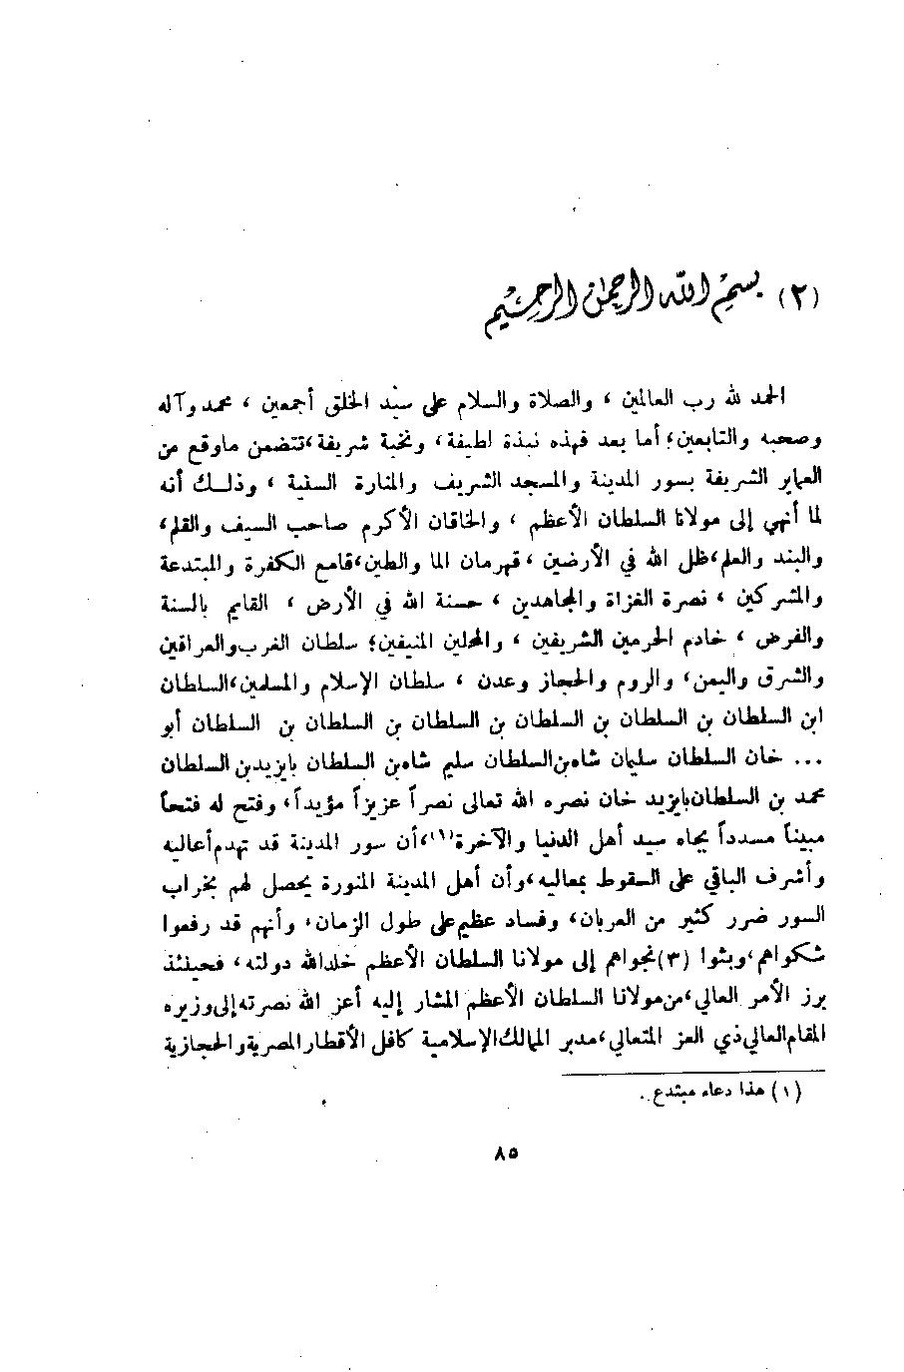 (٢) بسم الله الرحمن الرحيم
الحمد لله رب العالمين ، والصلاة والسلام على سيّد الخلق أجمعين ، محمد وآله
وصحبه والتابعين؛ أما بعد فهذه نبذة لطيفة، ونخبة شريفة،تتضمن ماوقع من
العماير الشريفة بسور المدينة والمسجد الشريف والمنارة السنية ، وذلك أنه
لما أنهي إلى مولانا السلطان الأعظم ، والخاقان الأكرم صاحب السيف والقلم،
والبند والعلم،ظل الله في الأرضين ، قهرمان الما والطين،قامع الكفرة والمبتدعة
والمشركين ، نصرة الغزاة والمجاهدين ، حسنة الله في الأرض ، القايم بالسنة
والفرض ، خادم الحرمين الشريفين ، والمحلين المنيفين؛ سلطان الغرب والعراقين
والشرق واليمن، والروم والحجاز وعدن ، سلطان الإسلام والمسلمين،السلطان
ابن السلطان بن السلطان بن السلطان بن السلطان بن السلطان بن السلطان أبو
... خان السلطان سليمان شاه بن السلطان سليم شاه بن السلطان بايزيد بن السلطان
محمد بن السلطان بايزيد خان نصره الله تعالى نصراً عزيزاً مؤيداً، وفتح له فتحاً
مبيناً مسدداً بجاه سيد أهل الدنيا والآخرة(١)،أن سور المدينة قد تهدم أعاليه
وأشرف الباقي على السقوط بمعاليه،وأن أهل المدينة المنورة يحصل لهم بخراب
السور ضرر كثير من العربان، وفساد عظيم على طول الزمان، وأنهم قد رفعوا
شكواهم،وبثوا (٣)نجواهم إلى مولانا السلطان الأعظم خلد الله دولته، فحينئذ
برز الأمر العالي،من مولانا السلطان الأعظم المشار إليه أعز الله نصرته إلى وزيره
المقام العالي ذي العز المتعالي،مدبر الممالك الإسلامية كافل الأقطار المصرية والحجازية
(١) هذا دعاء مبتدع .
٨٥